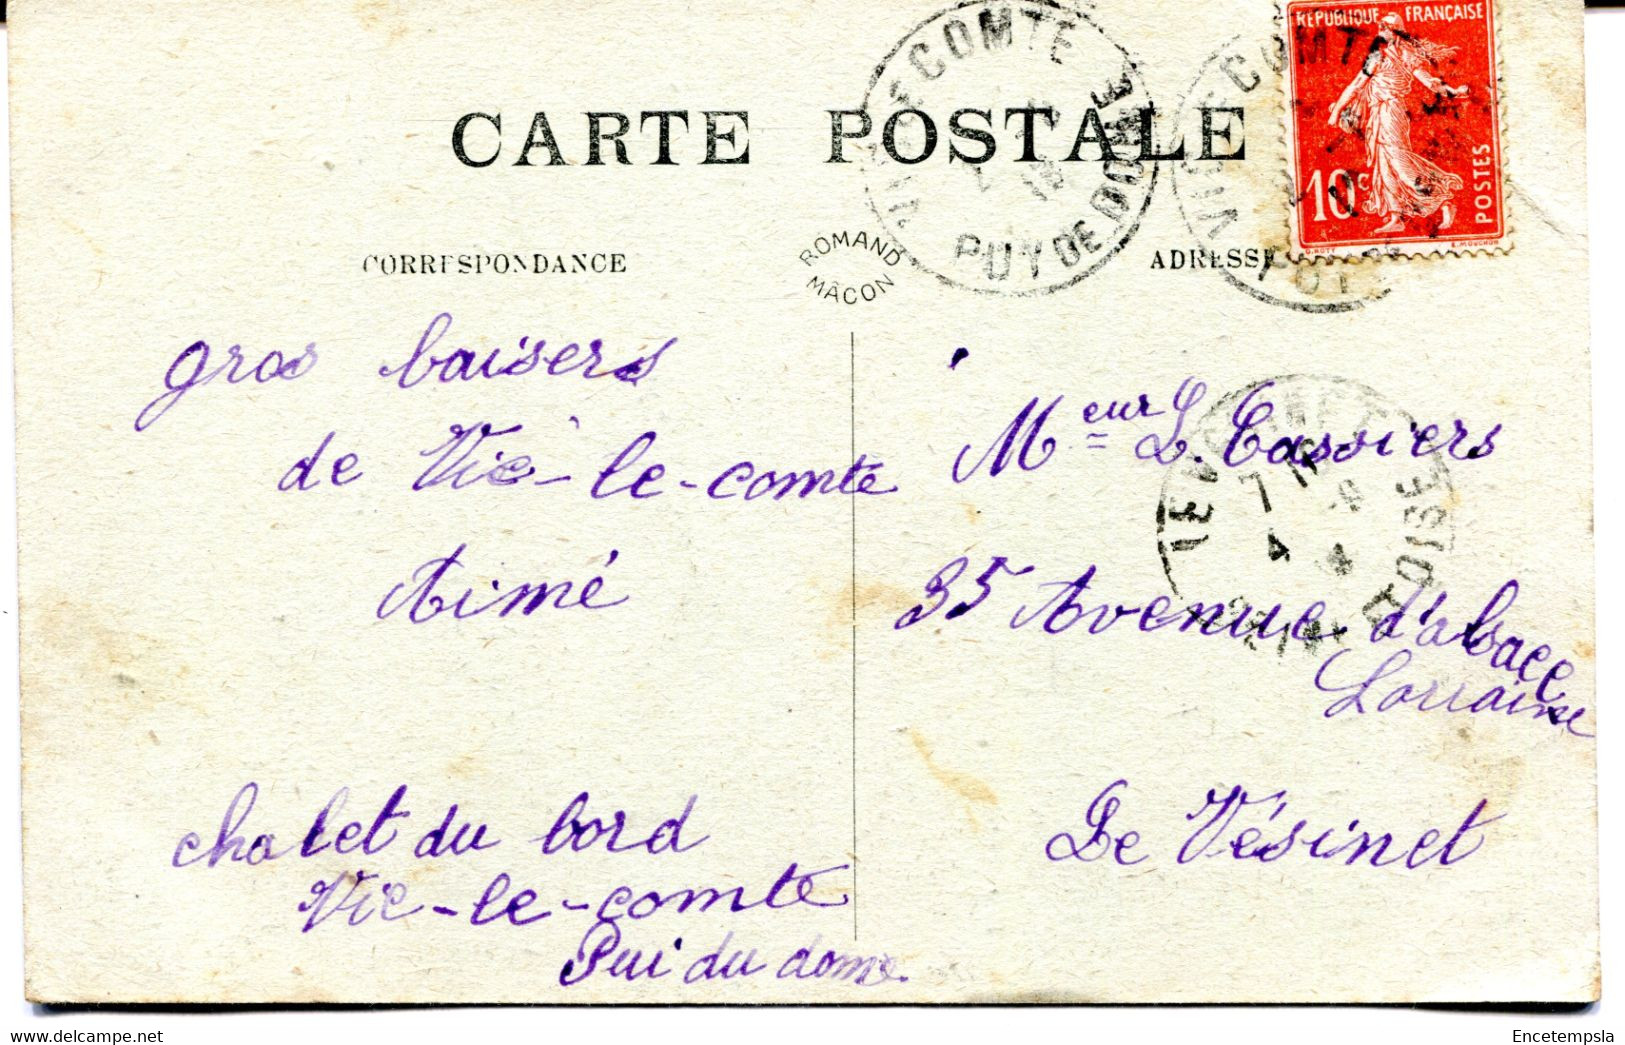 CARTE POSTALE
VIC LE COMTE
PUY DE DOME
REPUBLIQUE FRANÇAISE
10c
POSTES
CORRESPONDANCE
ROMAND
MÂCON
ADRESSE
gros baisers
de Vic-le-comte
Aimé
chalet du bord
Vic-le-comte
Pui du dome.
Meur L. Cassiers
35 Avenue d'alsace
Lorraine
Le Vésinet
Encetempsla